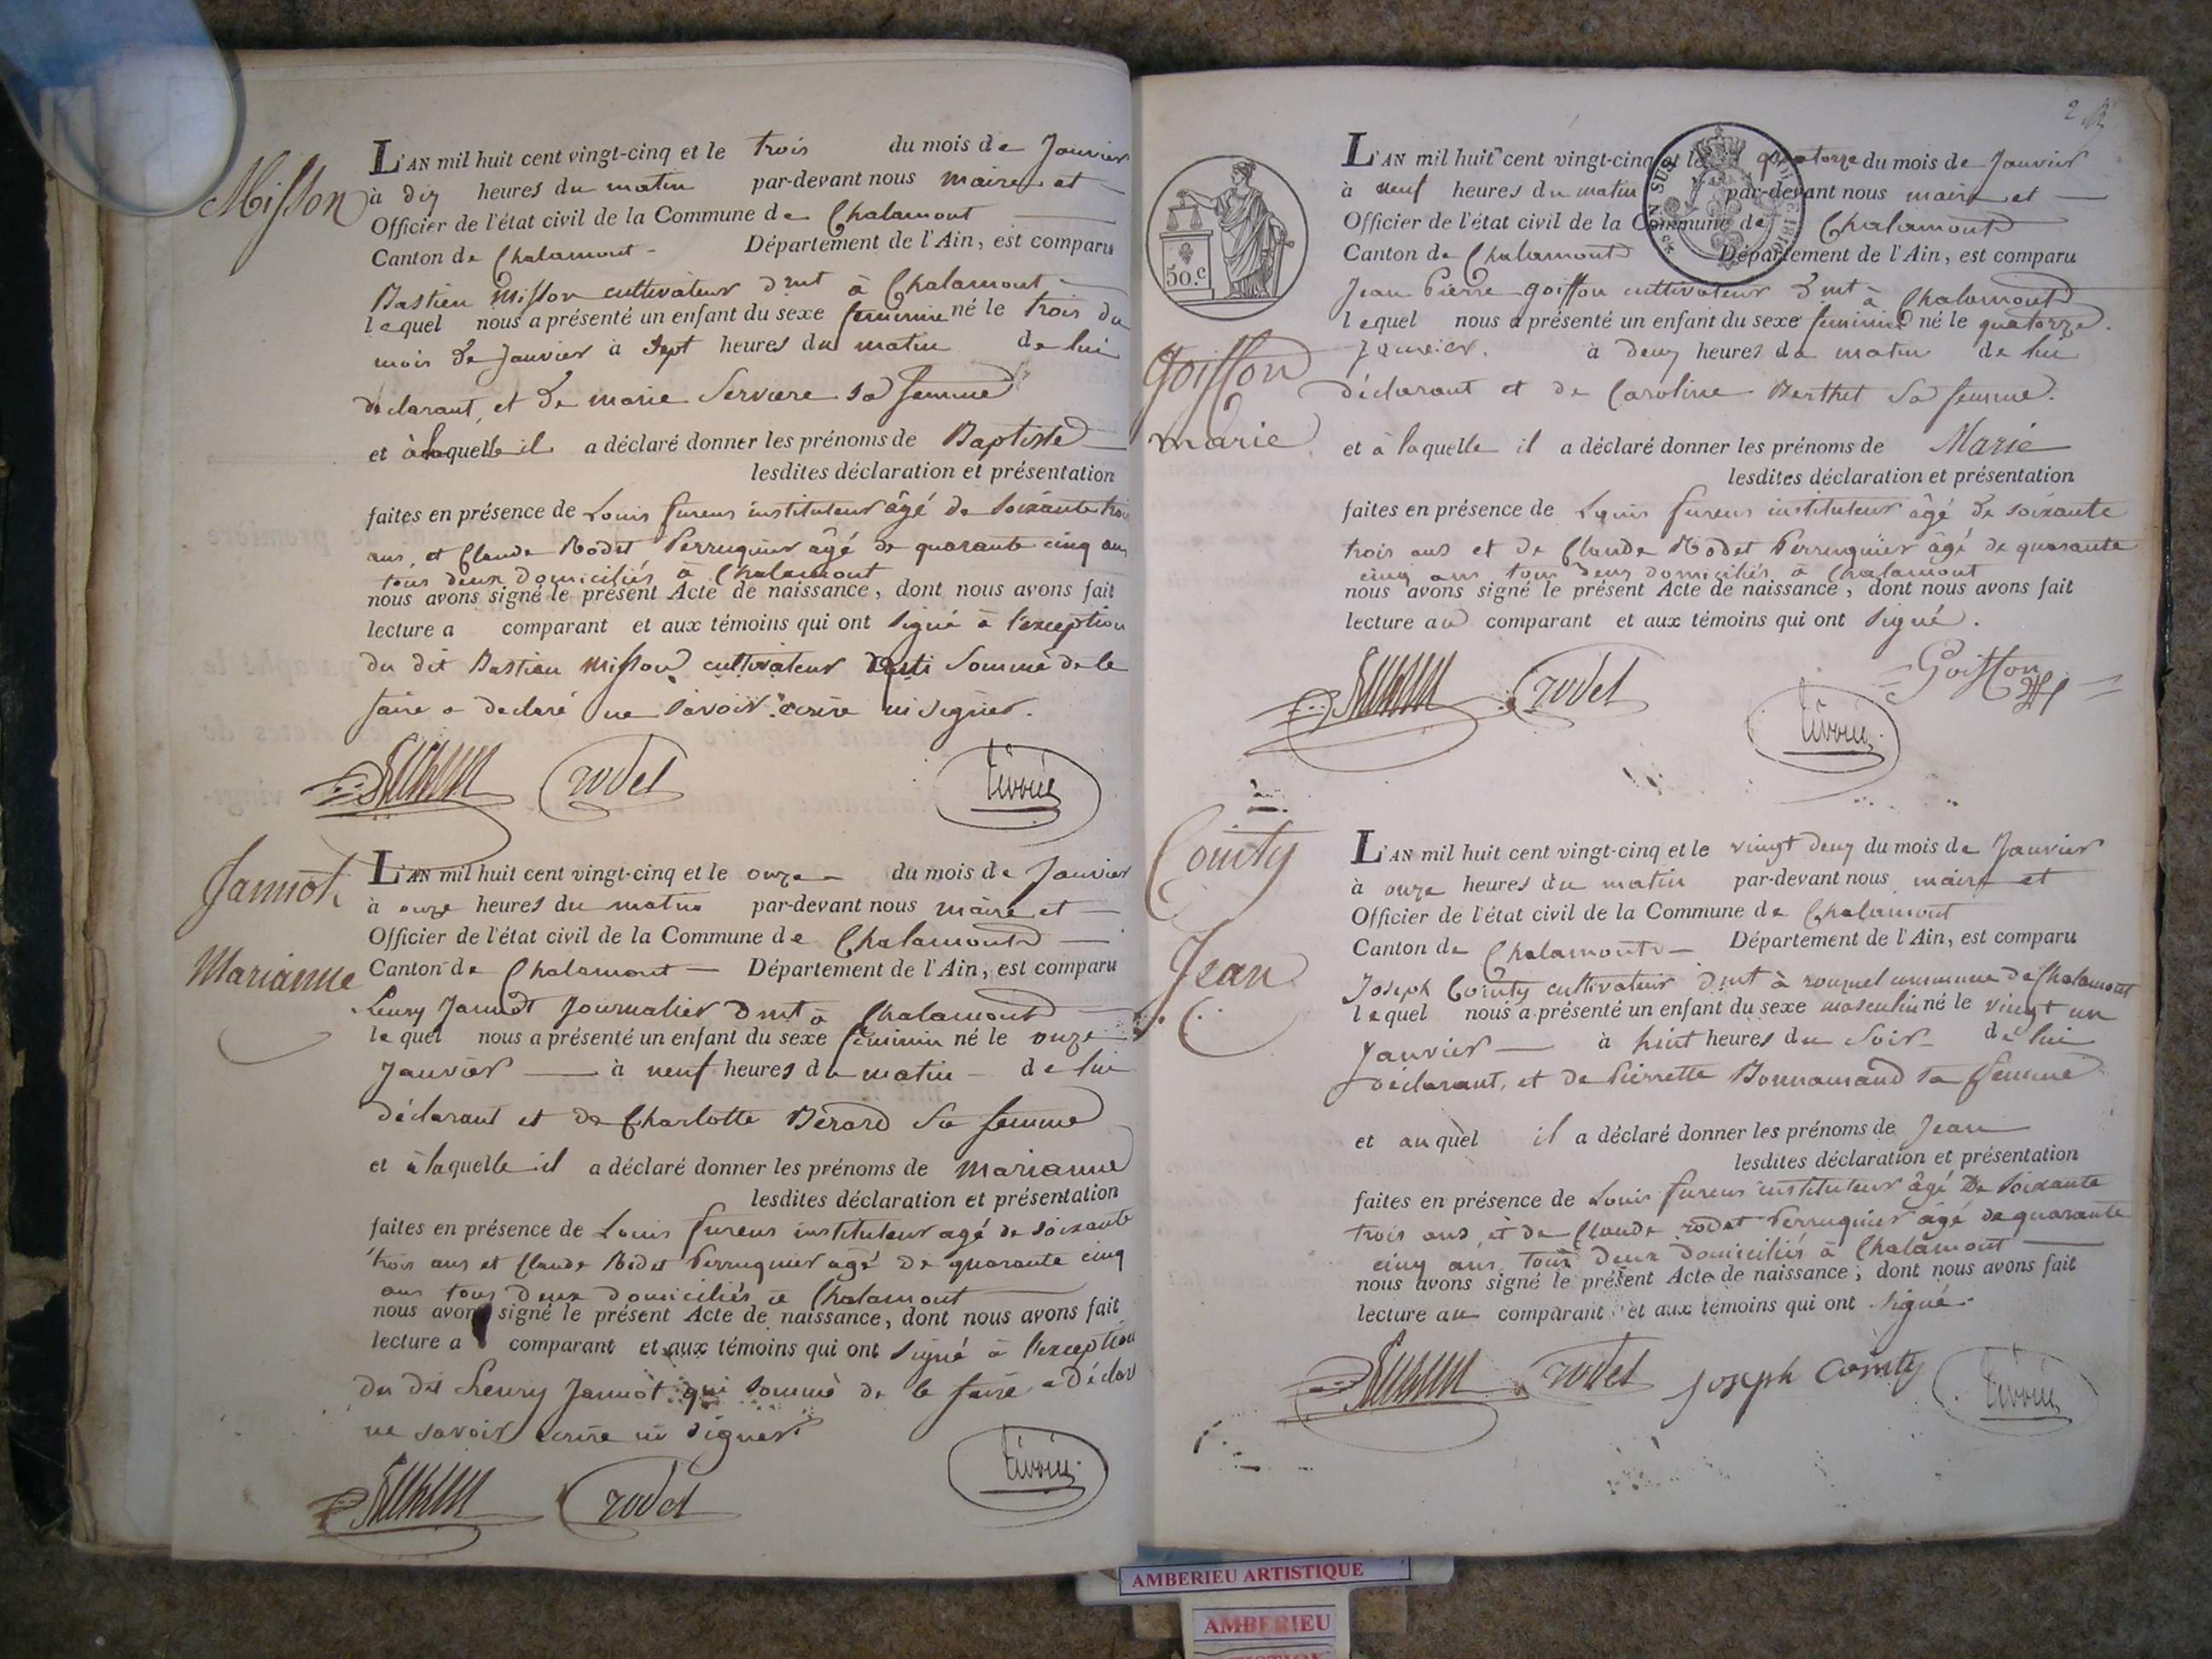 Misson
L'AN mil huit cent vingt-cinq et le trois du mois de Janvier
à dix heures du matin par-devant nous maire et
Officier de l'état civil de la Commune de Chalamont
Canton de Chalamont Département de l'Ain, est comparu
Bastien Misson cultivateur dmt à Chalamont
lequel nous a présenté un enfant du sexe feminin né le trois du
mois de Janvier à sept heures du matin de lui
déclarant, et de marie Serviere sa femme
et à laquelle il a déclaré donner les prénoms de Baptiste
lesdites déclaration et présentation
faites en présence de Louis fureus instituteur âgé de soixante trois
ans, et Claude Rodet Perruquier âgé de quarante cinq ans
tous deux domiciliés à Chalamont
nous avons signé le présent Acte de naissance, dont nous avons fait
lecture a comparant et aux témoins qui ont signé à l'exception
du dit Bastien Misson cultivateur sommé de le
faire a declaré ne savoir écrire ni signer.
rodet
Jannot
Marianne
L'AN mil huit cent vingt-cinq et le onze du mois de Janvier
à onze heures du matin par-devant nous maire et
Officier de l'état civil de la Commune de Chalamont
Canton de Chalamont Département de l'Ain, est comparu
henry Jannot Journalier dmt à Chalamont
lequel nous a présenté un enfant du sexe feminin né le onze
Janvier à neuf heures du matin de lui
déclarant et de Charlotte Bérard sa femme
et à laquelle il a déclaré donner les prénoms de marianne
lesdites déclaration et présentation
faites en présence de Louis fureus instituteur agé de soixante
trois ans et Claude Rodet Perruquier agé de quarante cinq
ans tous deux domiciliés à Chalamont
nous avons signé le présent Acte de naissance, dont nous avons fait
lecture a comparant et aux témoins qui ont signé à l'exception
du dit henry Jannot qui sommé de le faire a déclaré
ne savoir écrire ni signer
rodet
2
50.c
Goiffon
marie
L'AN mil huit cent vingt-cinq et le quatorze du mois de Janvier
à neuf heures du matin par-devant nous maire et
Officier de l'état civil de la Commune de Chalamont
Canton de Chalamont Département de l'Ain, est comparu
Jean Pierre goiffon cultivateur dmt à Chalamont
lequel nous a présenté un enfant du sexe feminin né le quatorze
Janvier. à deux heures du matin de lui
déclarant et de Caroline Berthet sa femme.
et à laquelle il a déclaré donner les prénoms de Marie
lesdites déclaration et présentation
faites en présence de Louis fureus instituteur âgé de soixante
trois ans et de Claude Rodet Perruquier âgé de quarante
cinq ans tous deux domiciliés à Chalamont
nous avons signé le présent Acte de naissance, dont nous avons fait
lecture au comparant et aux témoins qui ont signé.
rodet Goiffon
Cointy
Jean
L'AN mil huit cent vingt-cinq et le vingt deux du mois de Janvier
à onze heures du matin par-devant nous maire et
Officier de l'état civil de la Commune de Chalamont
Canton de Chalamont Département de l'Ain, est comparu
Joseph Cointy cultivateur dmt à commune de Chalamont
lequel nous a présenté un enfant du sexe masculin né le vingt un
Janvier à huit heures du soir de lui
déclarant, et de Pierrette Bonnamand sa femme
et auquel il a déclaré donner les prénoms de Jean
lesdites déclaration et présentation
faites en présence de Louis fureus instituteur âgé de soixante
trois ans, et de Claude rodet Perruquier âgé de quarante
cinq ans tous deux domiciliés à Chalamont
nous avons signé le présent Acte de naissance, dont nous avons fait
lecture au comparant et aux témoins qui ont signé.
rodet Joseph Cointy
AMBERIEU ARTISTIQUE
AMBERIEU